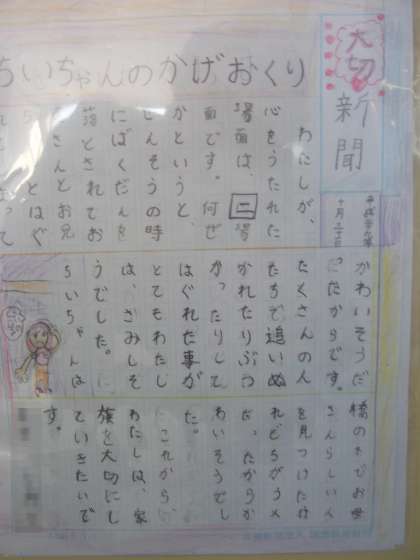 大切
新聞
ちいちゃんのかげおくり
わたしが、
心をうたれた
場面は、二場
面です。何ぜ
かというと、
せんそうの時
にばくだんを
落とされてお
さんとお兄
とはぐ
かわいそうだ
ったからです。
たくさんの人
たちで追いぬ
かれたりぶつ
かったりして
はぐれた事が
とてもわたし
は、さみしそ
うでした。
ちいちゃんは
橋の下でお母
さんらしい人
を見つけたけ
れどちがうメ
だったから
わいそうでし
た。
これから、
わたしは、家
族を大切にし
ていきたいで
す。